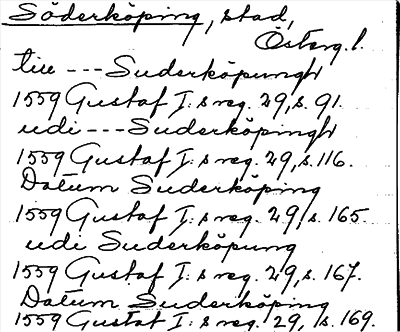 Söderköping, stad,
Österg. l.
till --- Suderköpungh
1559 Gustaf I: s reg. 29, s. 91.
udi --- Suderköpingh
1559 Gustaf I: s reg. 29, s. 116.
Datum Suderköping
1559 Gustaf I: s reg. 29, s. 165.
udi Suderköpung
1559 Gustaf I: s reg. 29, s. 167.
Datum Suderköping
1559 Gustaf I: s reg. 29, s. 169.